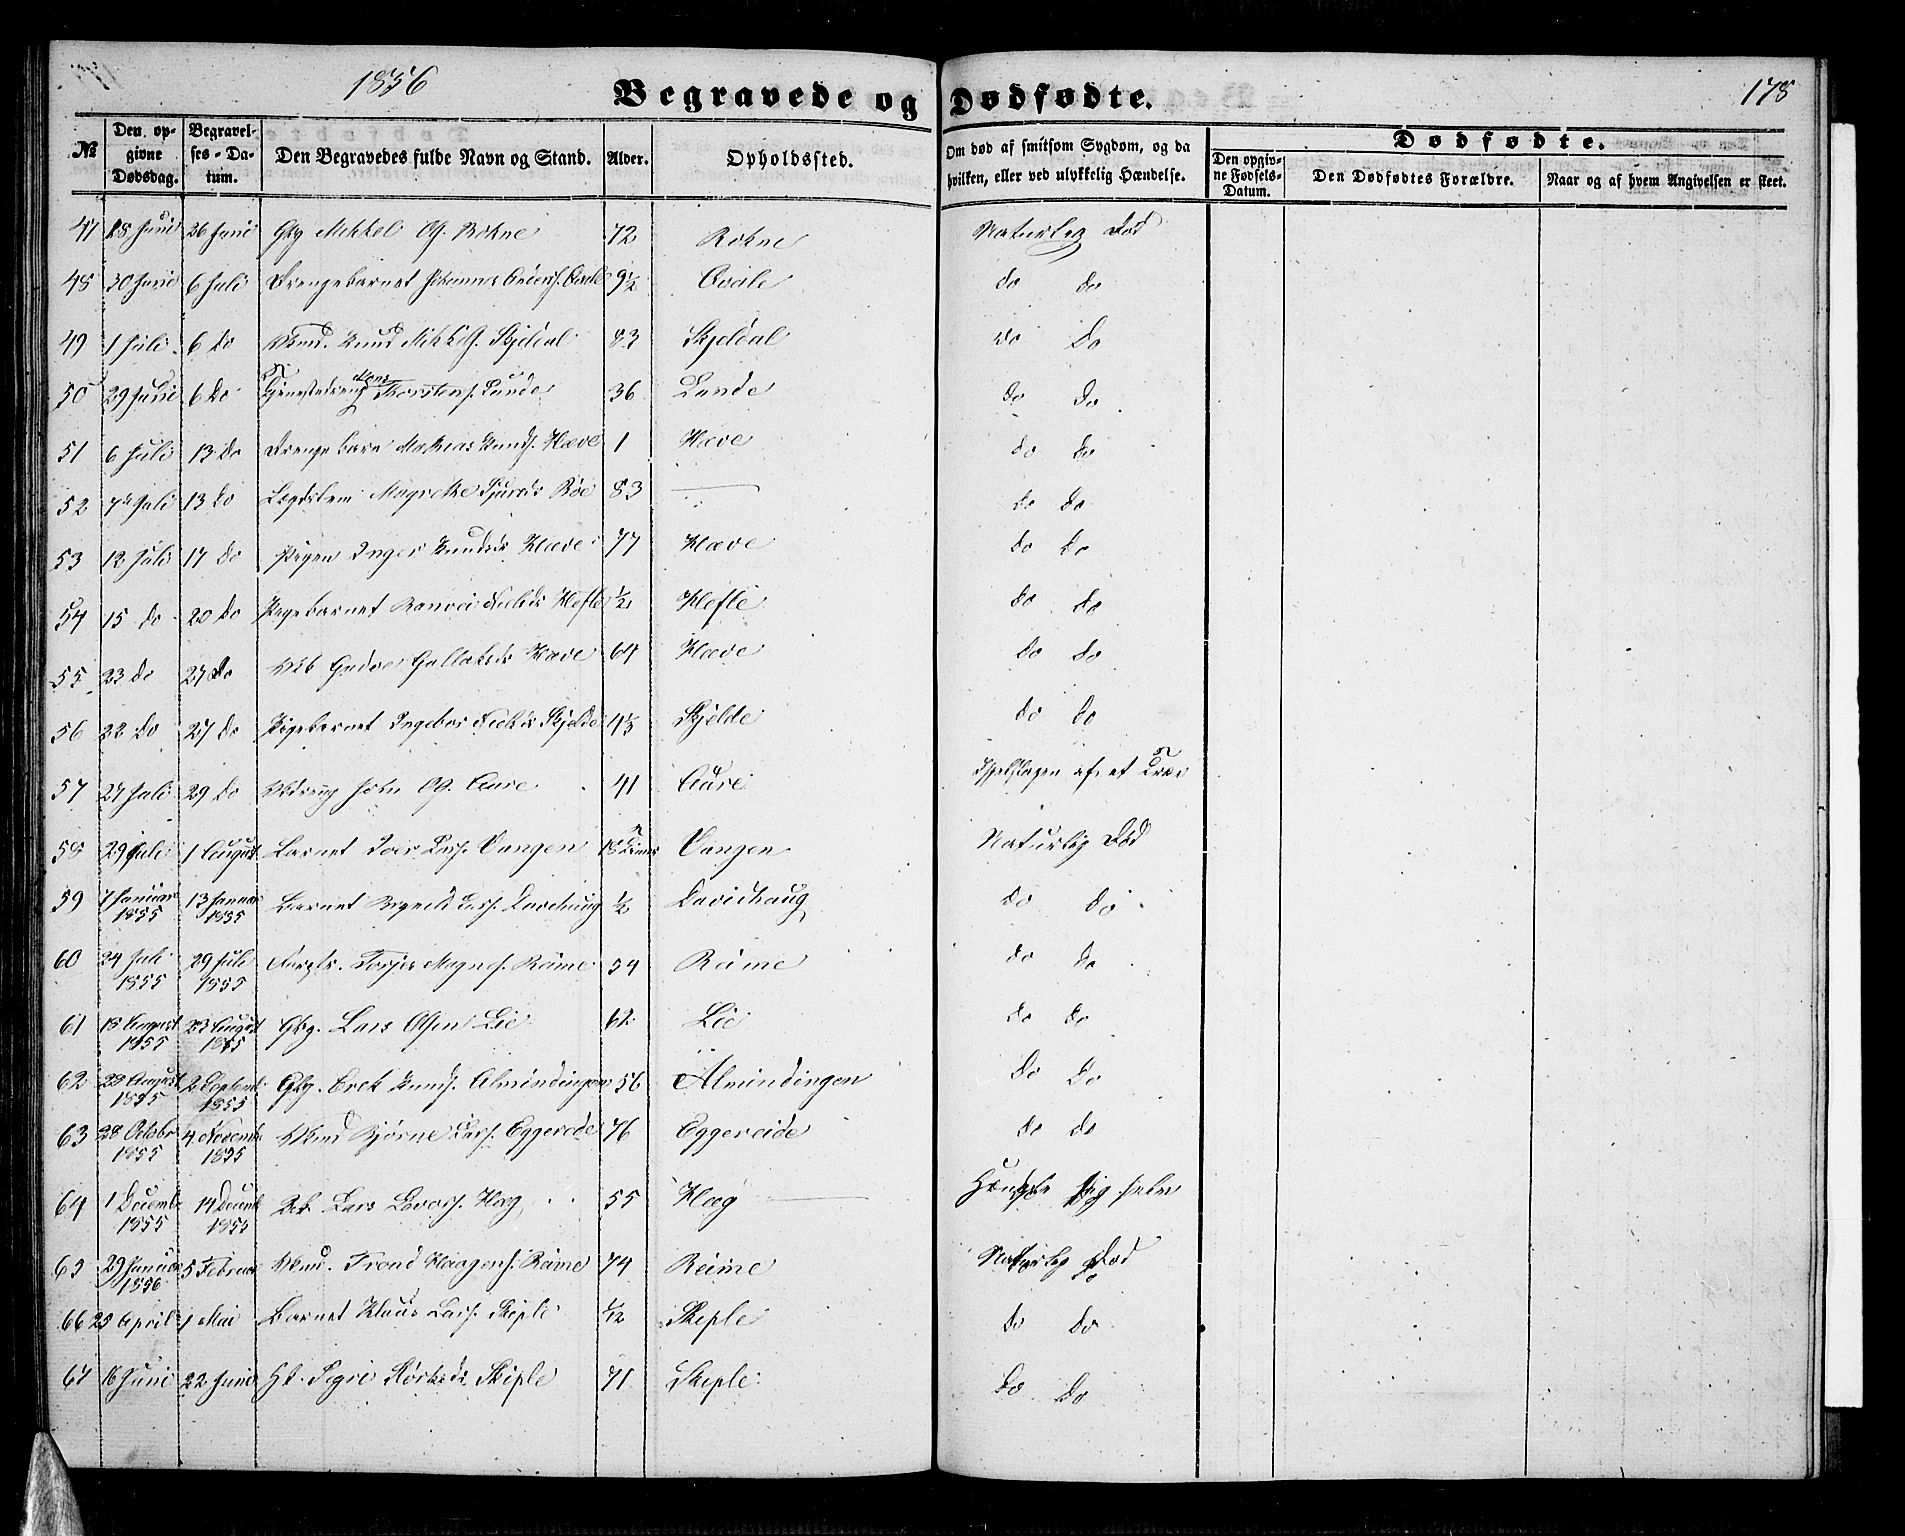 1856
Begravede og Dødfødte.
178
№
Den opgivne Dødsdag.
Begravelses-Datum.
Den Begravedes fulde Navn og Stand.
Alder.
Opholdssted.
Om død af smitsom Sygdom, og da hvilken, eller ved ulykkelig Hændelse.
Dødfødte.
Den opgivne Fødsels-Datum.
Den Dødfødtes Forældre.
Naar og af hvem Angivelsen er skeet.
47 18 Juni 26 Juni Gbg Mikkel Rokne 72 Rokne Naturlig Død
48 30 Juni 6 Juli Drengebarnet Johannes 9½ do do
49 1 Juli 6 Do Knud Skjeldal 83 Skjeldal do Do
50 29 Juni 6 Do Mons Thorstens. Lunde 36 Lunde do Do
51 6 Juli 13 Do Drengebarn Mathias Knuds. Hæve 1 Hæve do do
52 7de Juli 13 Do Lægdslem Magrethe Sjurds Röe 83 — do do
53 12 Juli 17 Do Pigen Inger Knudsdr Hæve 77 Hæve do do
54 15 do 20 Do Pigebarnet Ranvei Nielsdr Hefte ½ Hefte do do
55 23 Do 27 Do Gudve Hæve 64 Hæve do do
56 22 Do 27 Do Pigebarnet Ingebor Nielsdr Skjelde Skjelde do do
57 27 Juli 29 Do John Aure 41 Aure af et Træe
58 29 Juli 1 August Barnet Iver Lars. Vangen 18 Vangen Naturlig Død
59 7 Januar 1855 13 Januar 1855 Barnet Lars. Davidhaug ½ Davidhaug do do
60 24 Juli 1855 29 Juli 1855 Torjer Magnes. Räime 59 Räime do do
61 18 August 1855 23 August 1855 Gbg. Lars Olsen Lie 62 Lie do do
62 22 August 1855 2 Septemb. 1855 Gbg. Erek Knuds. Almindingen 56 Almindingen Do Do
63 28 Octobr 1855 4 Novemb 1855 Bjørne Lars. Eggereide 76 Eggereide do do
64 1 Decemb 1855 14 Decemb 1855 Lars Hæg 55 Hæg — Hængte sig selv
65 29 Januar 1856 5 Februar Trond Haagens. Räime 74 Reime Naturlig Død
66 25 April 1 Mai Barnet Klaus Lars. Skiple Skiple do do
67 16 Juni 22 Juni Sigri Skiple 71 Skiple do do